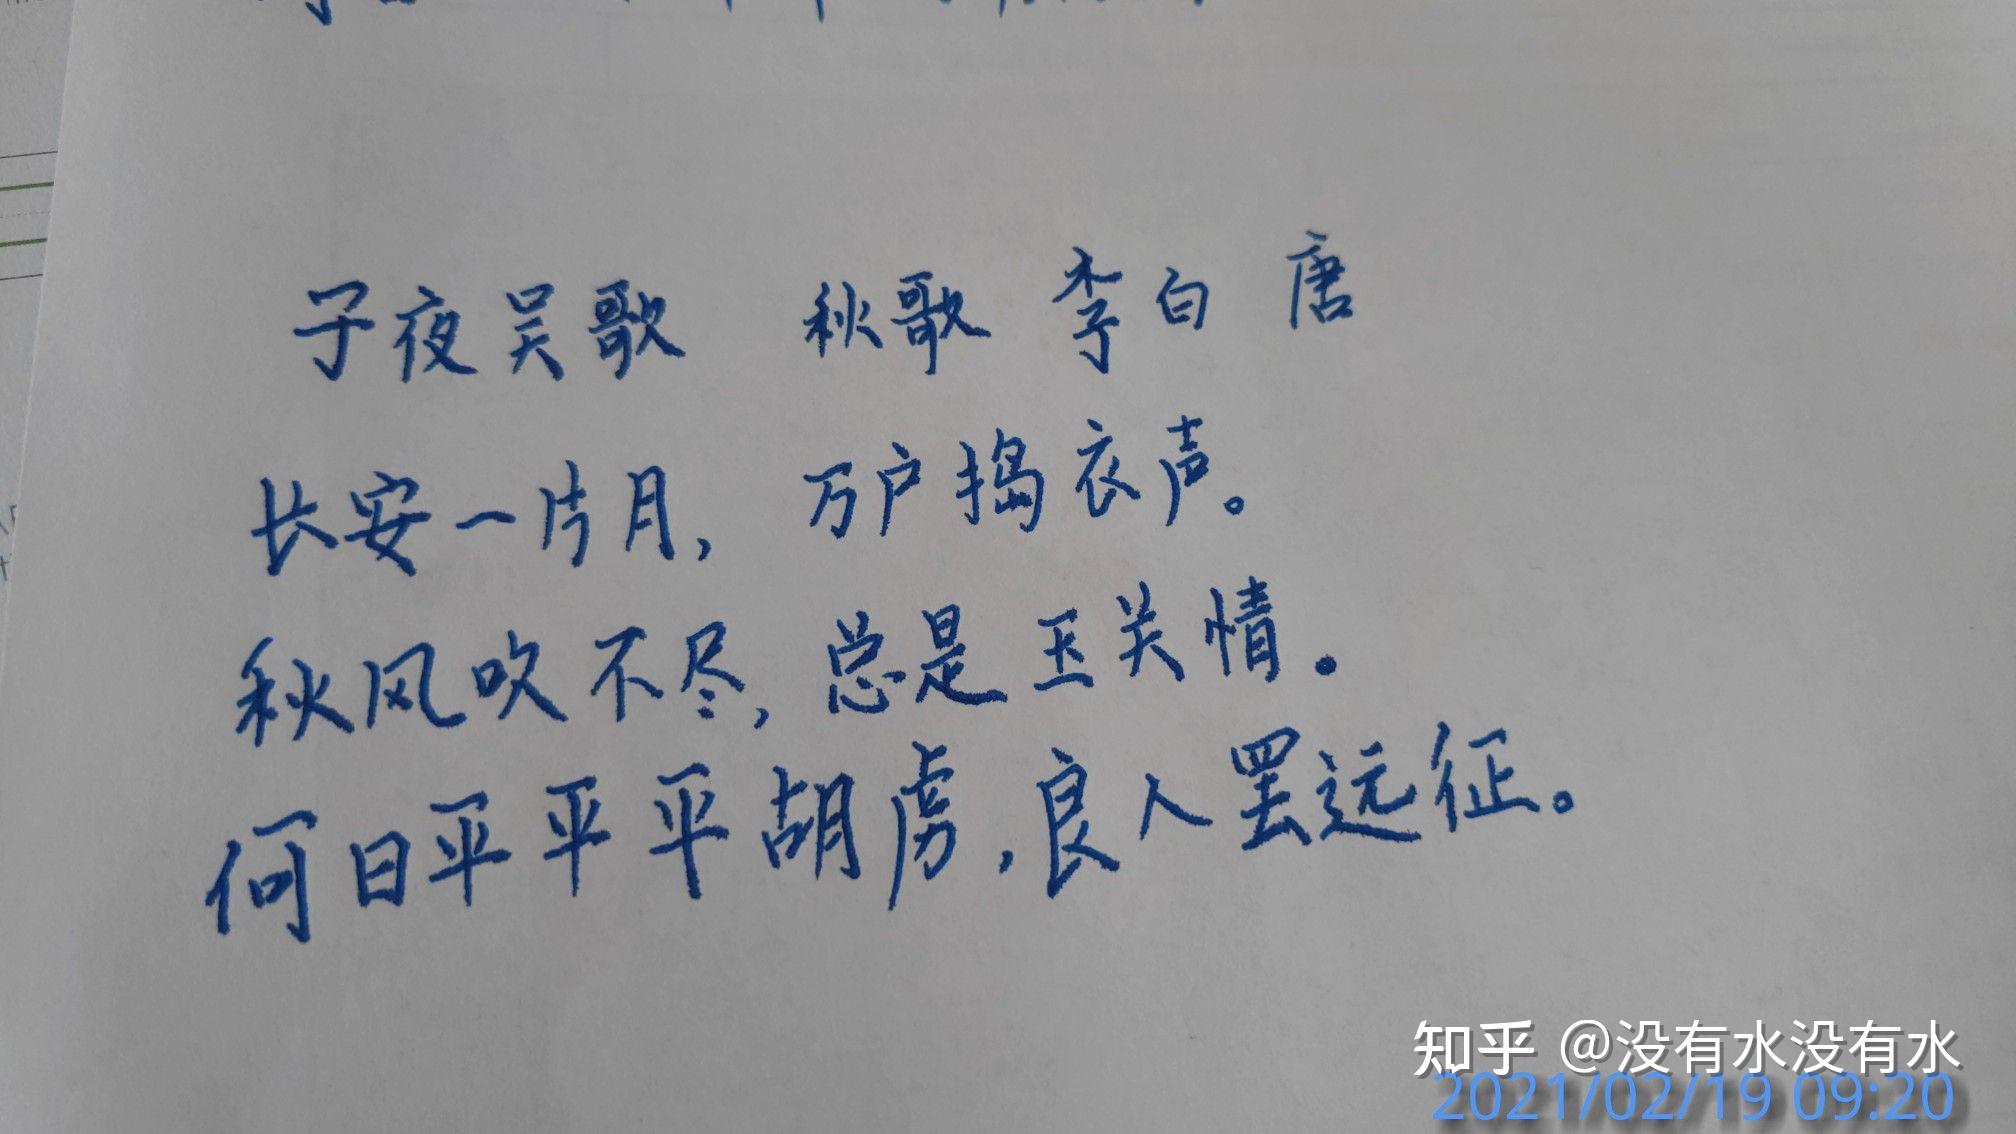 子夜吴歌 秋歌 李白 唐
长安一片月,万户捣衣声。
秋风吹不尽,总是玉关情.
何日平平平胡虏,良人罢远征。
知乎 @没有水没有水
2021/02/19 09:20